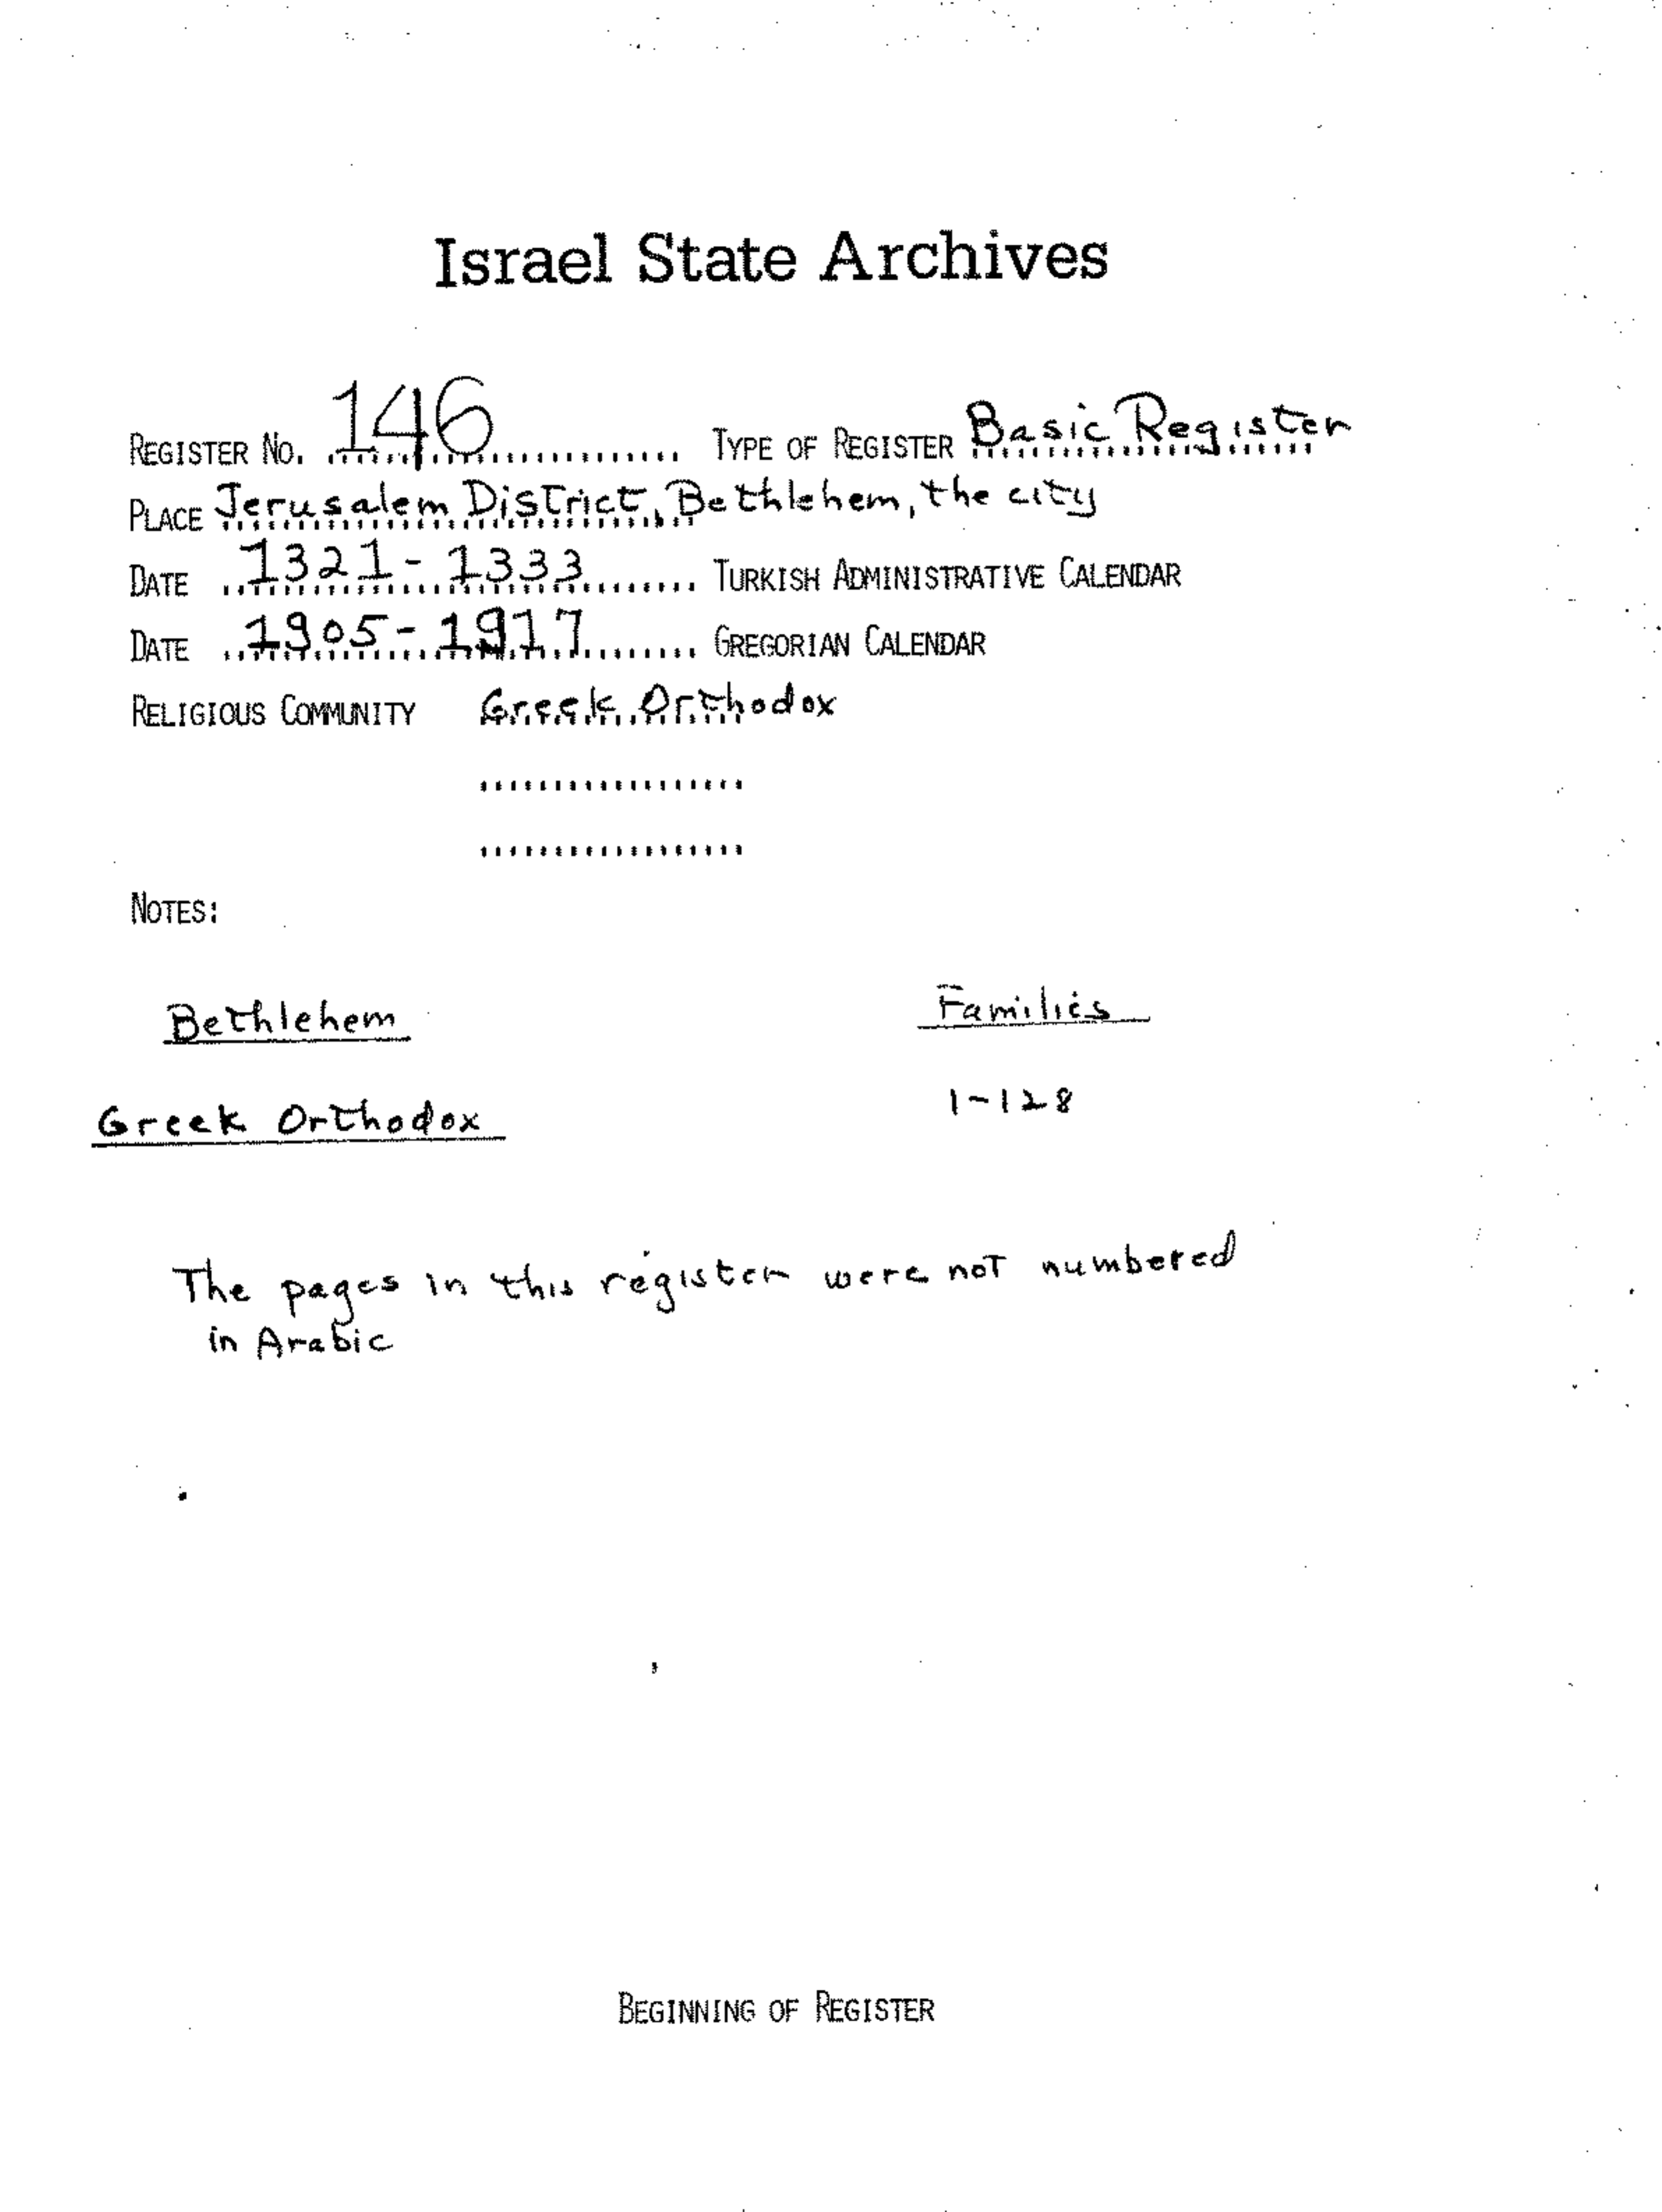 Israel State Archives
REGISTER NO. 146 TYPE OF REGISTER Basic Register
PLACE Jerusalem District, Bethlehem, the city
DATE 1321-1333 TURKISH ADMINISTRATIVE CALENDAR
DATE 1905-1917 GREGORIAN CALENDAR
RELIGIOUS COMMUNITY Greek Orthodox
NOTES:
Bethlehem Families
Greek Orthodox 1-128
The pages in this register were not numbered
in Arabic
BEGINNING OF REGISTER